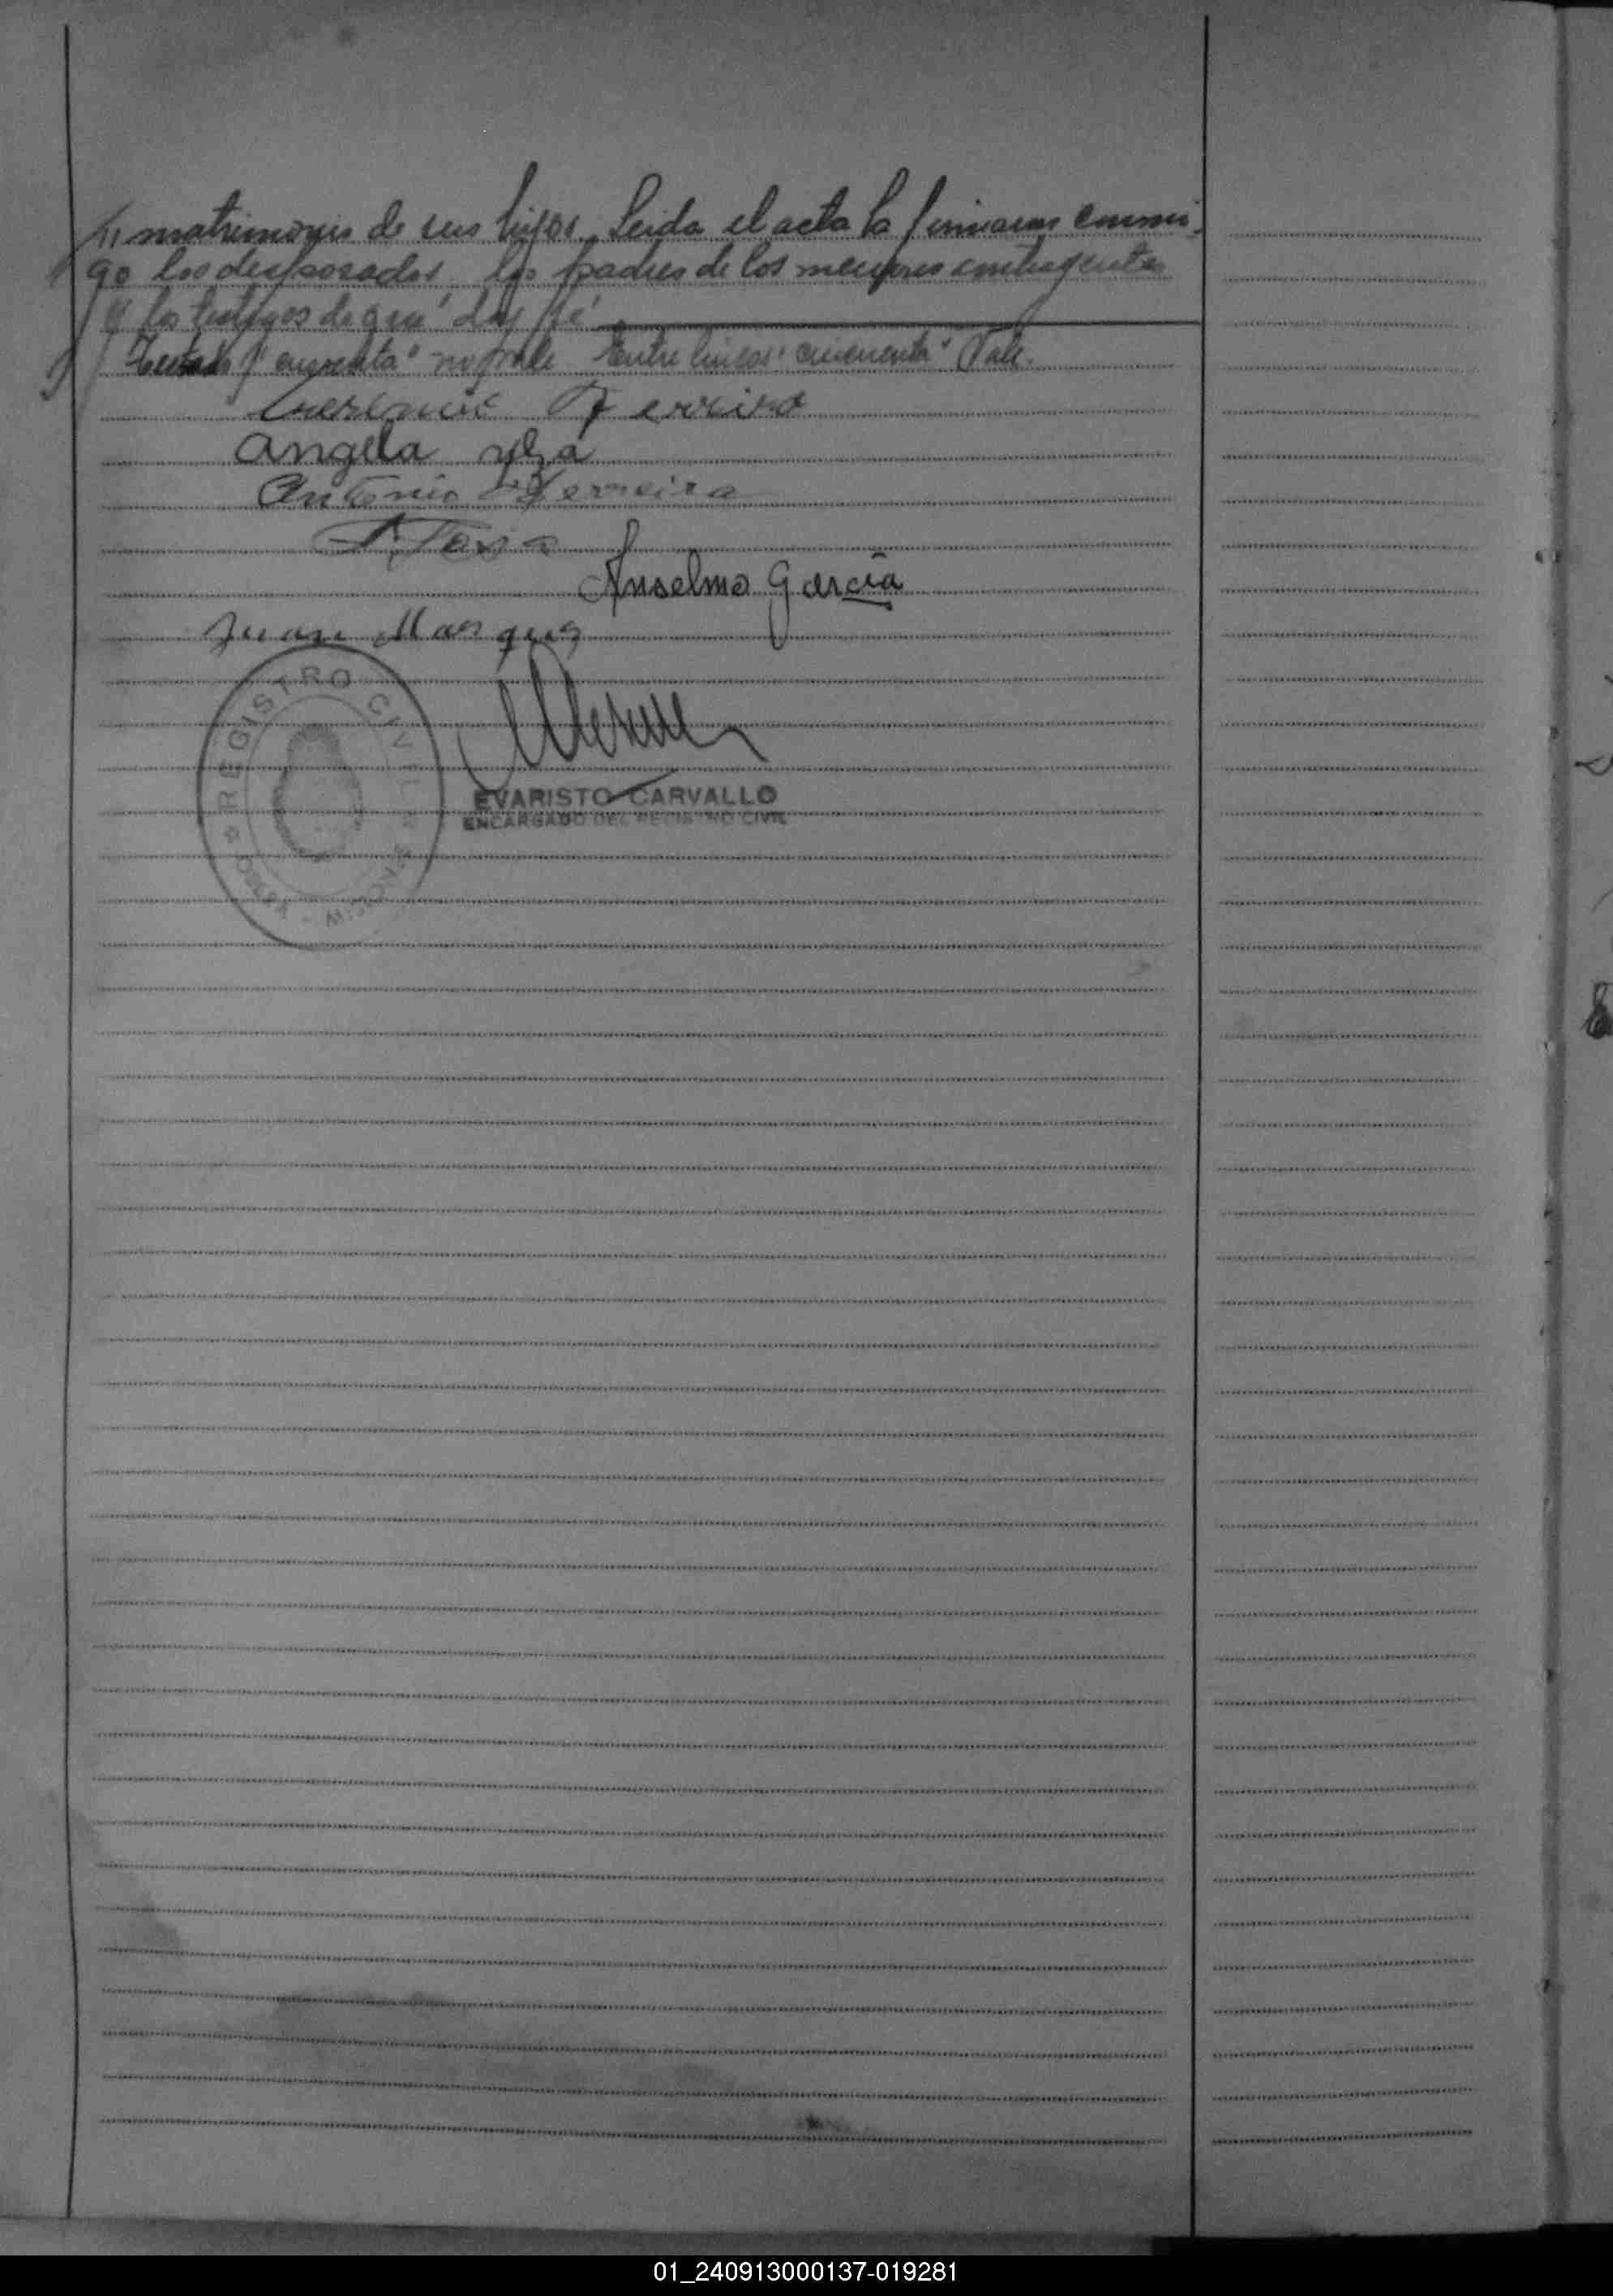 matrimonio de sus hijos. Leida el acta la firmaron conmi-
go los desposados, los padres de los menores contrayentes
y los testigos de que doy fé
Testado "cuarenta" no vale. Entre lineas: "cincuenta" Vale.
Ferreira
Angela
Antonio Ferreira
Anselmo García
Juan Marques
REGISTRO CIVIL
MISIONES
EVARISTO CARVALLO
ENCARGADO DEL REGISTRO CIVIL
01_240913000137-019281